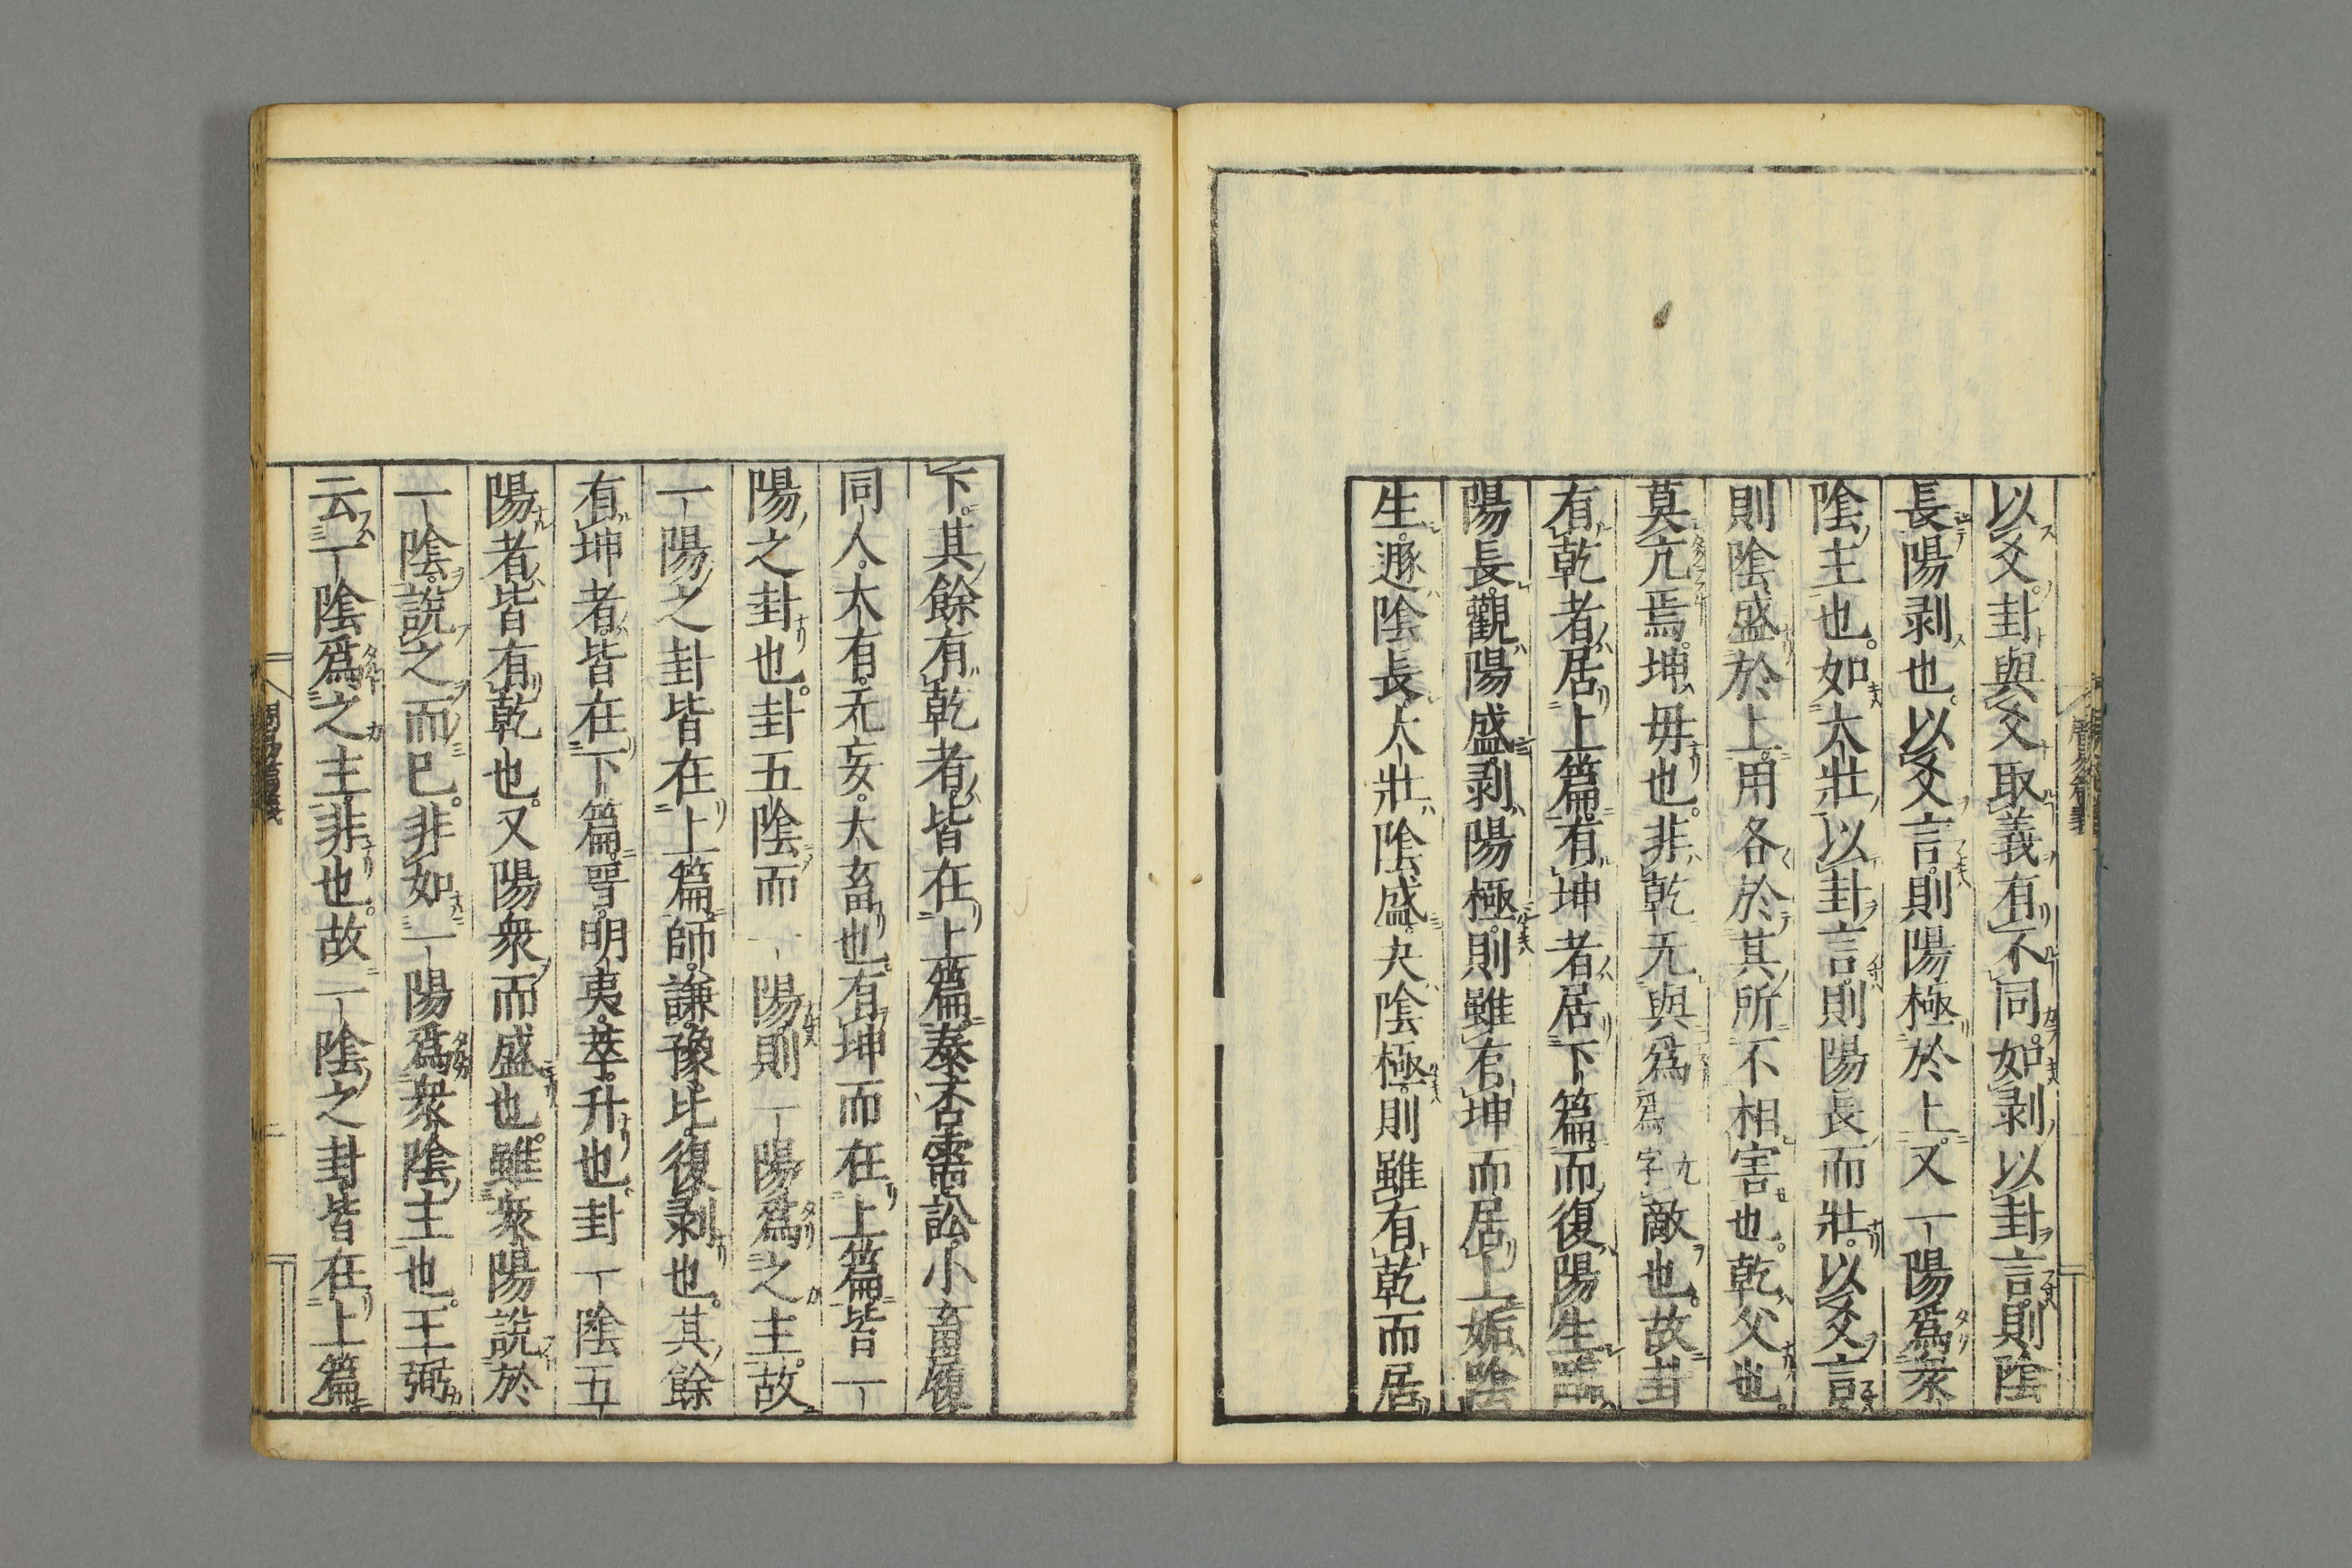 以爻。卦與爻取義有不同。如剥以卦言。則陰
長陽剥也。以爻言。則陽極於上。又一陽爲衆
陰主也。如大壯以卦言。則陽長而壯。以爻言。
則陰盛於上。用各於其所不相害也。乾父也。
莫亢焉。坤毋也。非乾无與爲爲九字敵也。故卦
有乾者居上篇。有坤者居下篇。而復陽生。臨
陽長。觀陽盛。剥陽極。則雖有坤而居上。姤陰
生。遯陰長。大壯陰盛。夬陰極。則雖有乾而居
下。其餘有乾者。皆在上篇。泰否需訟。小畜履
同人。大有。无妄。大畜也。有坤而在上篇。皆一
陽之卦也。卦五陰而一陽。則一陽爲之主。故
一陽之卦皆在上篇。師。謙。豫。比。復。剥也。其餘
有坤者。皆在下篇。晉。明夷。萃。升也。卦一陰五
陽者。皆有乾也。又陽衆而盛也。雖衆陽説於
一陰。説之而已。非如一陽爲衆陰主也。王弼
云一陰爲之主。非也。故一陰之卦皆在上篇